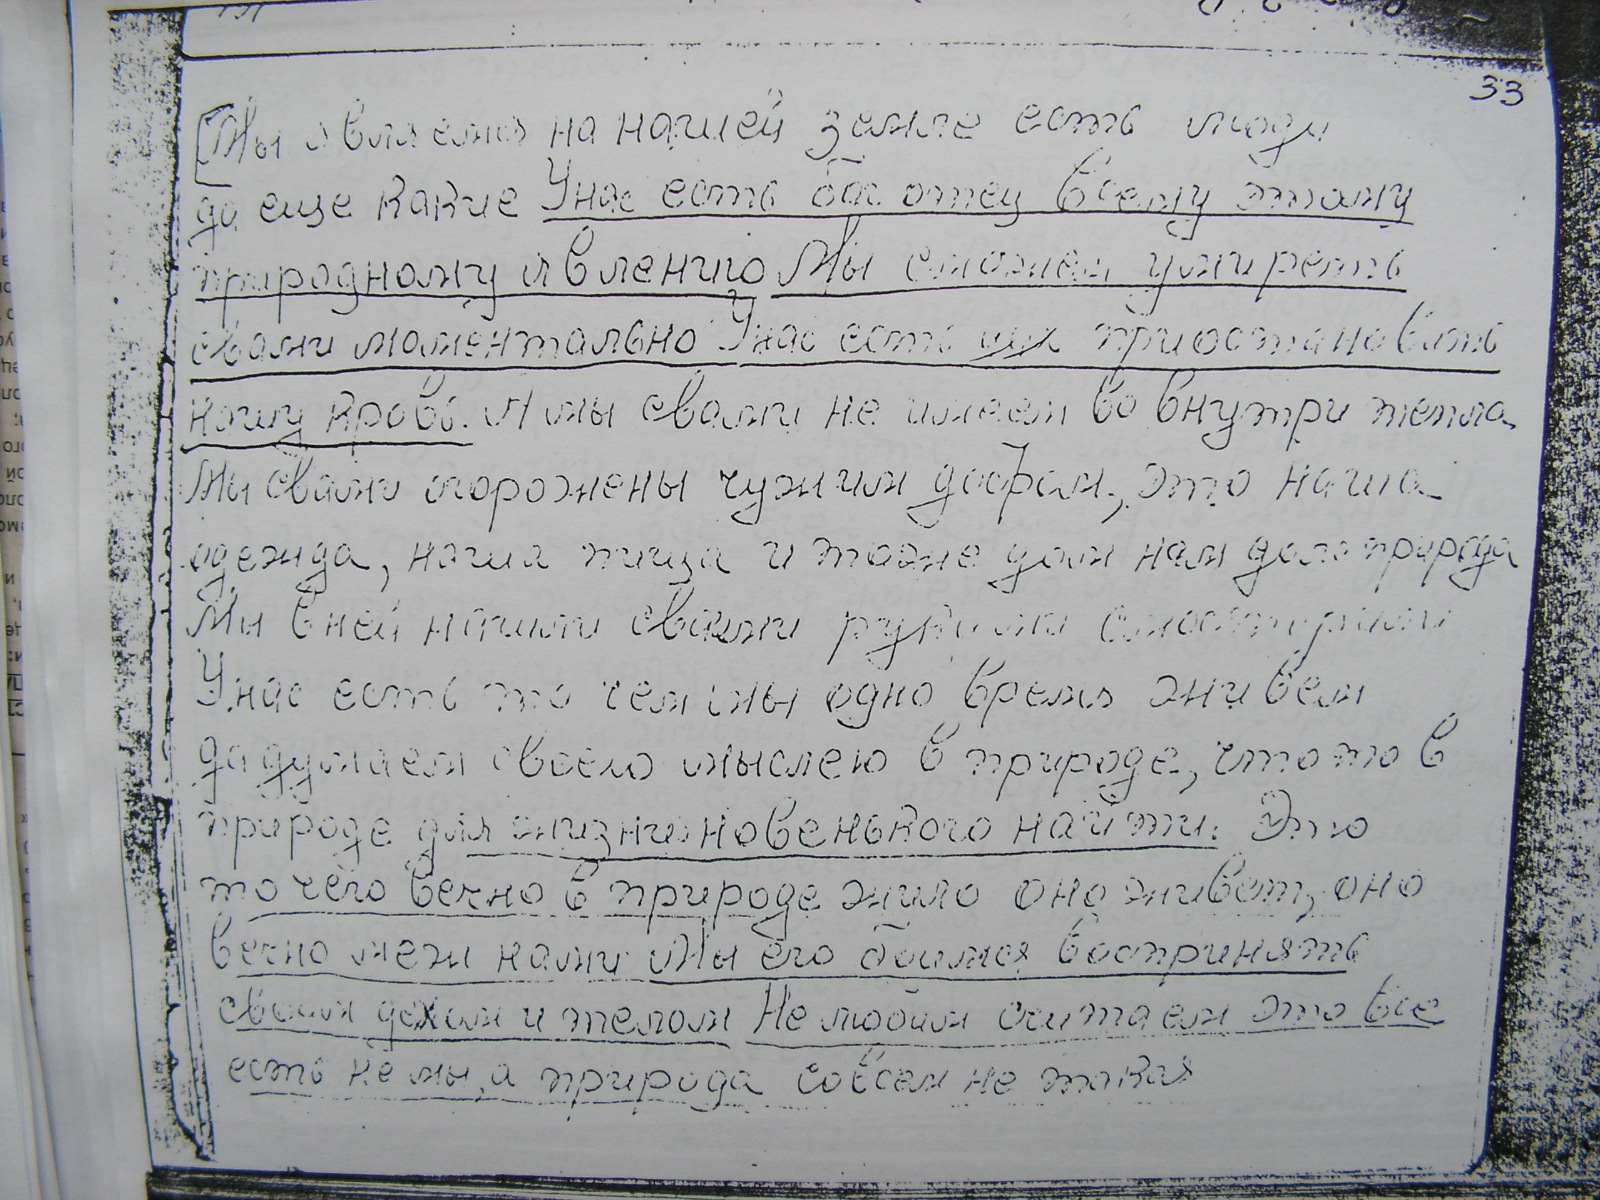 33
Мы являемся на нашей земле есть люди
да еще какие Унас есть бог отец всему этому
природному явлению Мы сможем умиреть
свами моментально Унас есть приостановить
нашу кровь. А мы свами не имеем во внутри тепла
Мы свами огорожены чужим добром, это наша
одежда, наша пища и также дом нам дала природа
Мы в ней нашими сваими руками смастирили
Унас есть то чем мы одно время живем
да думаем своею мыслею в природе, что то в
природе для жизни новенького найти. Это
то чего вечно в природе жило оно живет, оно
вечно межи нами Мы его боимся воспринять
своим духом и телом Не любим считаем это все
есть не мы, а природа совсем не такая